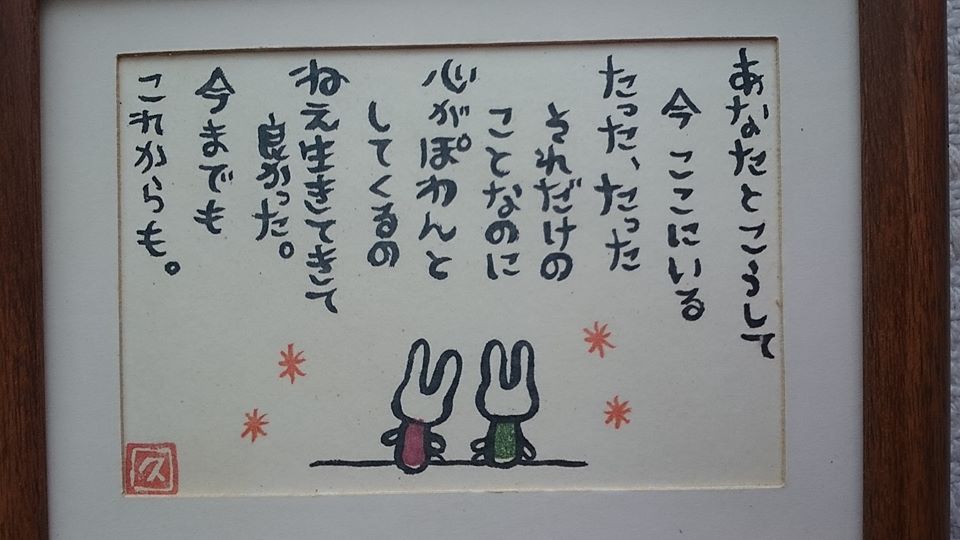 あなたとこうして
今ここにいる
たった、たった
それだけの
ことなのに
心がぽわんと
してくるの
ねえ生きてきて
良かった。
今までも
これからも。
久